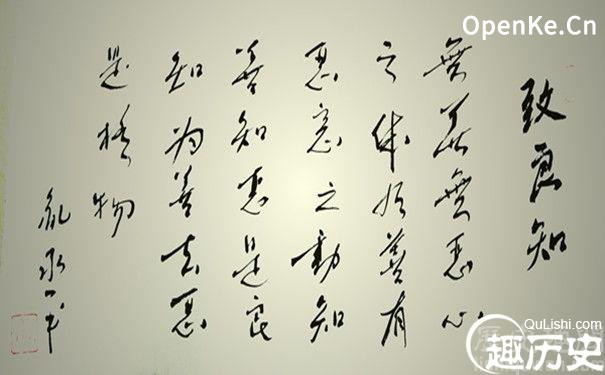 OpenKe.Cn
致良知
無善無恶心
之体有善有
恶意之動知
善知恶是良
知为善去恶
是格物
QuLishi.com
趣历史